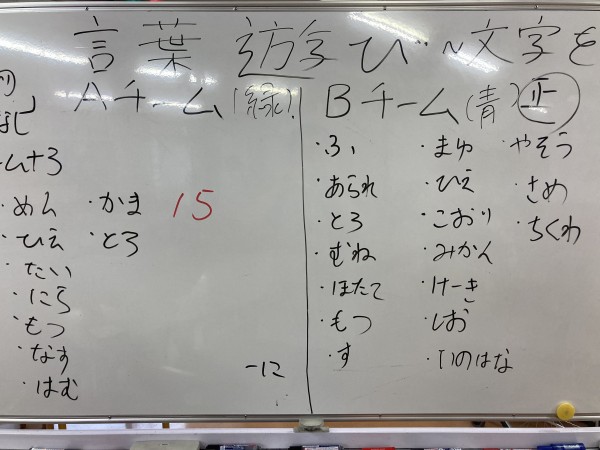 言葉遊び〜文字を
Aチーム(緑)
なし
ーム+3
・めん
・ひえ
・たい
・にら
・もつ
・なす
・はむ
・かま
・とろ
15
Bチーム(青) 正
・ふ
・あられ
・とろ
・むね
・ほたて
・もつ
・す
・まゆ
・ひえ
・こおり
・みかん
・けーき
・しお
・いのはな
・やそう
・さめ
・ちくわ